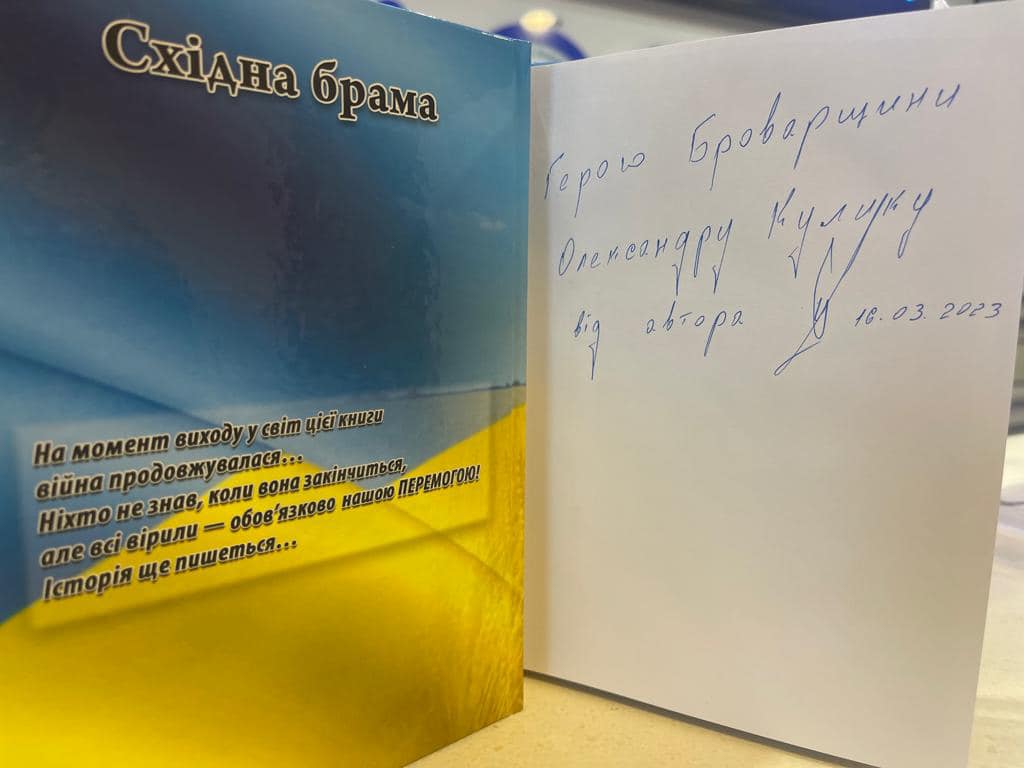 Східна брама
На момент виходу у світ цієї книги
війна продовжувалася...
Ніхто не знав, коли вона закінчиться,
але всі вірили — обов'язково нашою ПЕРЕМОГОЮ!
Історія ще пишеться...
Герою Броварщини
Олександру Кулику
від автора 16.03.2023